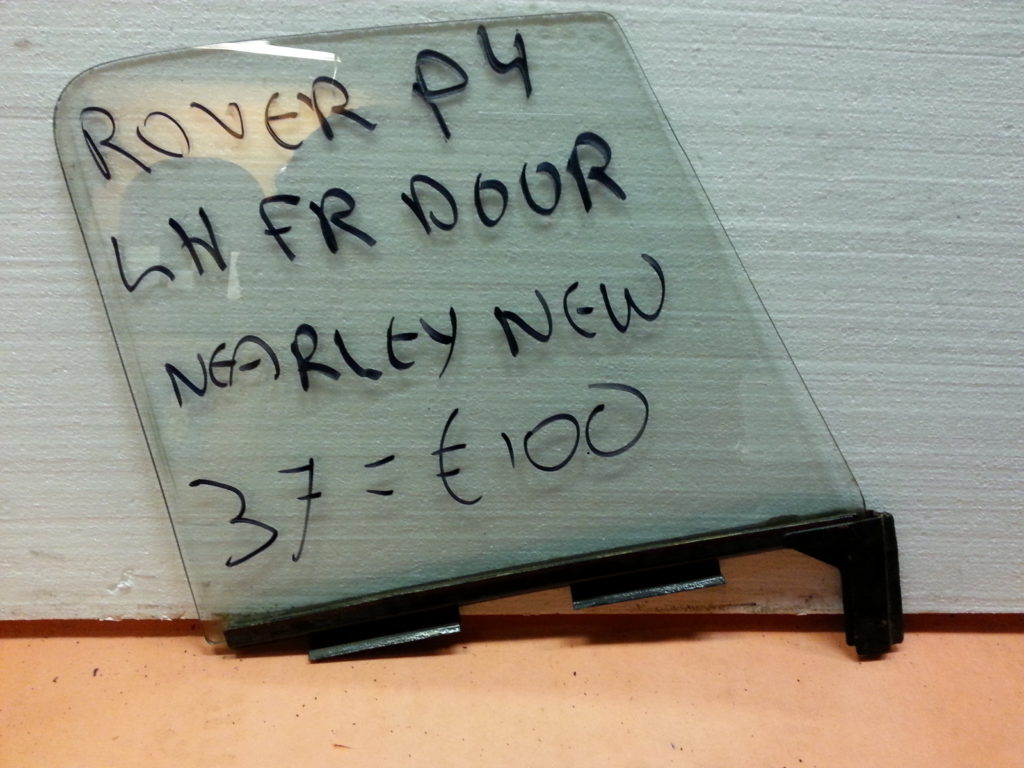 ROVER P4
LH FR DOOR
NEARLEY NEW
37 = €100